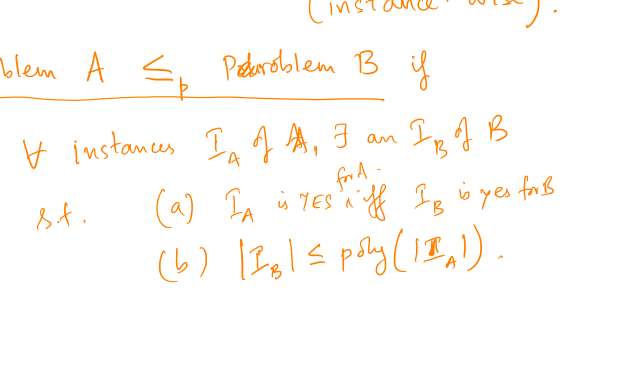 (instance wise).
blem A ≤p Problem B if
∀ instances I_A of A, ∃ an I_B of B
s.t. (a) I_A is YES for A iff I_B is yes for B
(b) |I_B| ≤ poly(|I_A|).